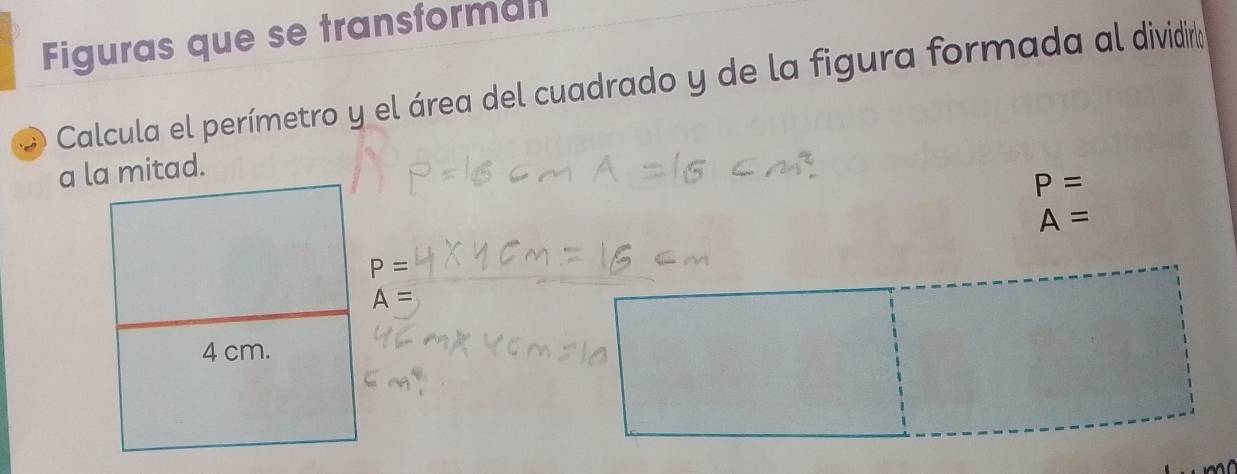 Figuras que se transforman
Calcula el perímetro y el área del cuadrado y de la figura formada al dividirlo
a la mitad.
R P = 16 cm A = 16 cm²
P =
A =
P = 4 x 4 cm = 16 cm
A =
4 cm x 4 cm = 16
cm²
4 cm.